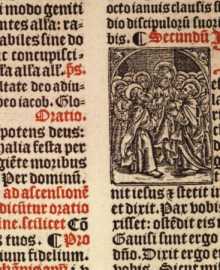 i modo geniti
entes alla: ra-
abiles sine do
nt concupisci-
sta alla all'. ps.
ultate deo adiu-
deo iacob. Glo-
Oratio.
potens deus:
halia festa per
giẽte moribus
Per dominũ.
ad ascensionẽ
dicũtur oratio
ine. scilicet Cõ
s tuos. ¶ Pro
ium fidelium.
octo ianuis clausis
dio discipulorũ suoru
bis. ¶ Secundũ
nit iesus ⁊ stetit i
et dixit. Pax vobi
xisset: ostẽdit eis
Gauisi sunt ergo
dño. Dixit ergo
vobis. Sicut